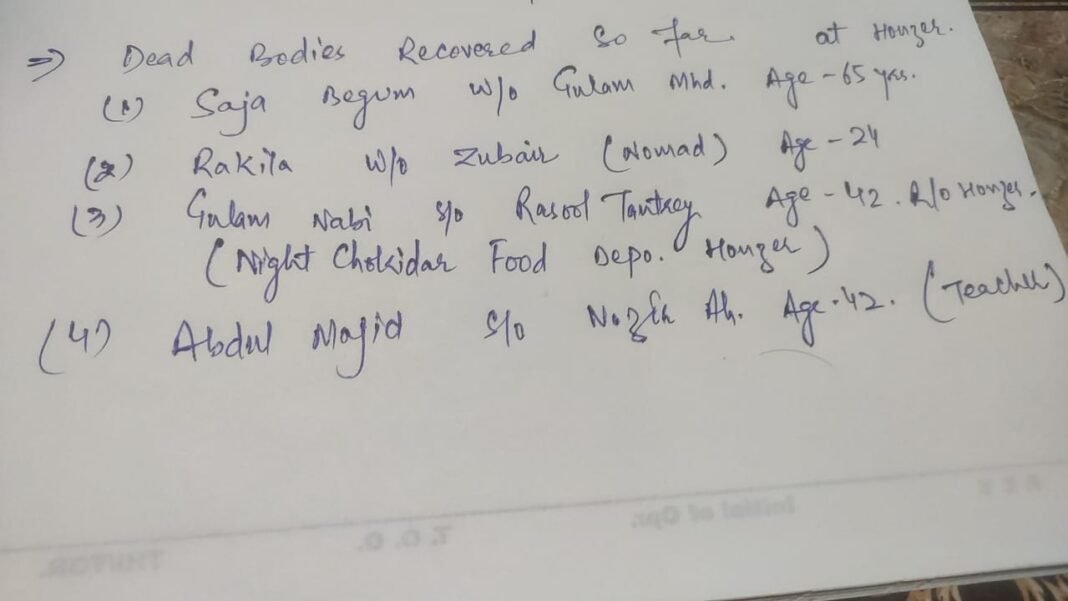 ⇒ Dead Bodies Recovered So far. at Honzer.
(1) Saja Begum w/o Gulam Mhd. Age - 65 yrs.
(2) Rakila w/o Zubair (Nomad) Age - 24
(3) Gulam Nabi s/o Rasool Tantrey Age - 42. R/o Honzer.
(Night Chokidar Food Depo. Honzer)
(4) Abdul Majid s/o Ah. Age - 42. (Teacher)
Initial of Opr.
T. O. O.
THI/TOR.